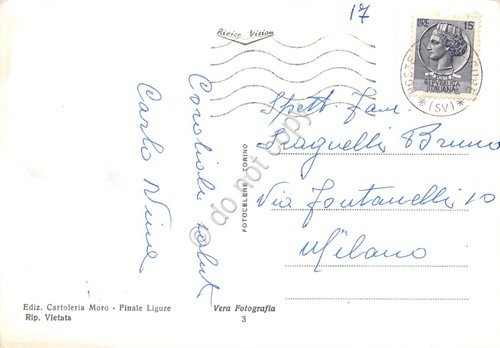 17
Rivico Vision
LIRE 15
REPUBBLICA
ITALIANA
(SV)
Cordiali saluti
Carlo Nina
Spett. Fam.
Bruno
Via Fontanelli 10
Milano
FOTOCELERE TORINO
do not copy
Ediz. Cartoleria Moro - Finale Ligure
Rip. Vietata
Vera Fotografia
3